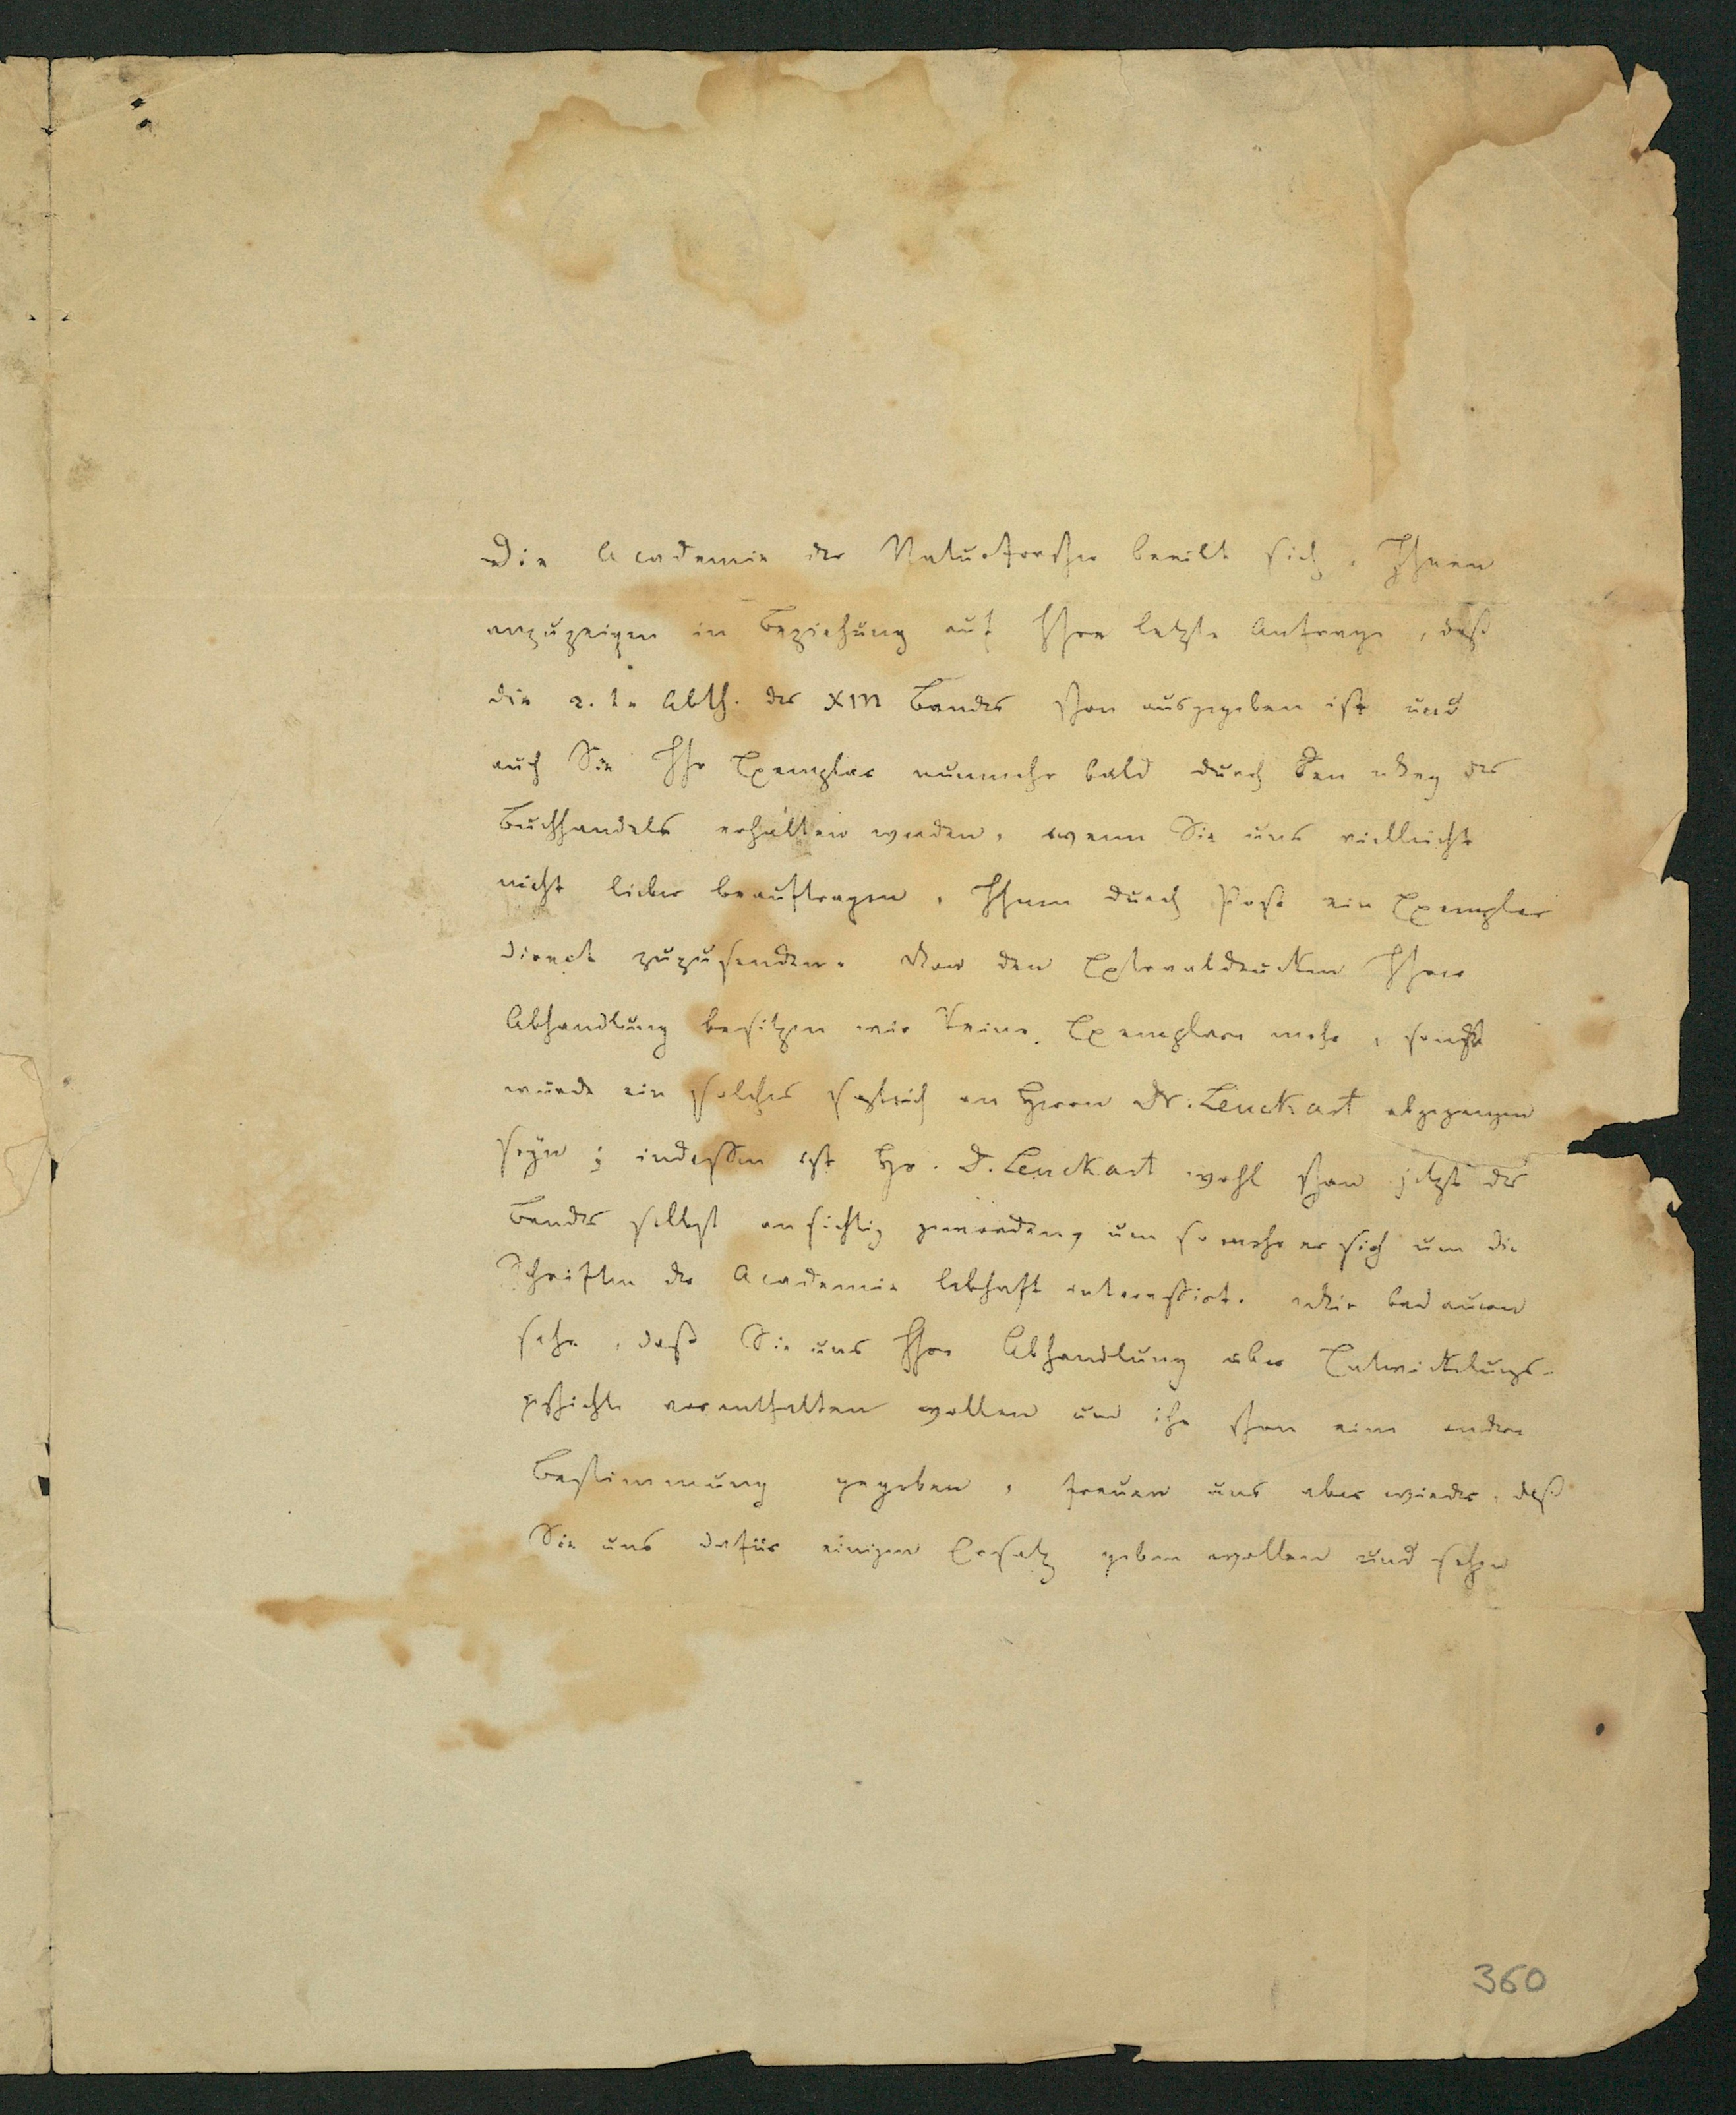 Die Academie der Naturforscher beeilt sich, Ihnen
anzuzeigen in Beziehung auf Ihre letzte Anfrage, daß
die 2. te Abth. des XIII Bandes schon ausgegeben ist und
auch Sie Ihr Exemplar nunmehr bald durch den Weg des
Buchhandels erhalten werden, wenn Sie uns vielleicht
nicht lieber beauftragen, Ihnen durch Post ein Exemplar
direct zuzusenden. Von den Extraabdrücken Ihrer
Abhandlung besitzen wir keine Exemplare mehr, sonst
würde ein solches sogleich an Herrn Dr. Leuckart abgegangen
seyn; indessen ist Hr. D. Leuckart wohl schon jetzt des
Bandes selbst ansichtig geworden, um so mehr er sich um die
Schriften der Academie lebhaft interessirt. Wir bedauern
sehr, daß Sie uns Ihre Abhandlung über Entwickelungs-
geschichte vorenthalten wollen und ihr schon eine andere
Bestimmung gegeben, freuen uns aber wieder, daß
Sie uns dafür einigen Ersatz geben wollen und sehen
360